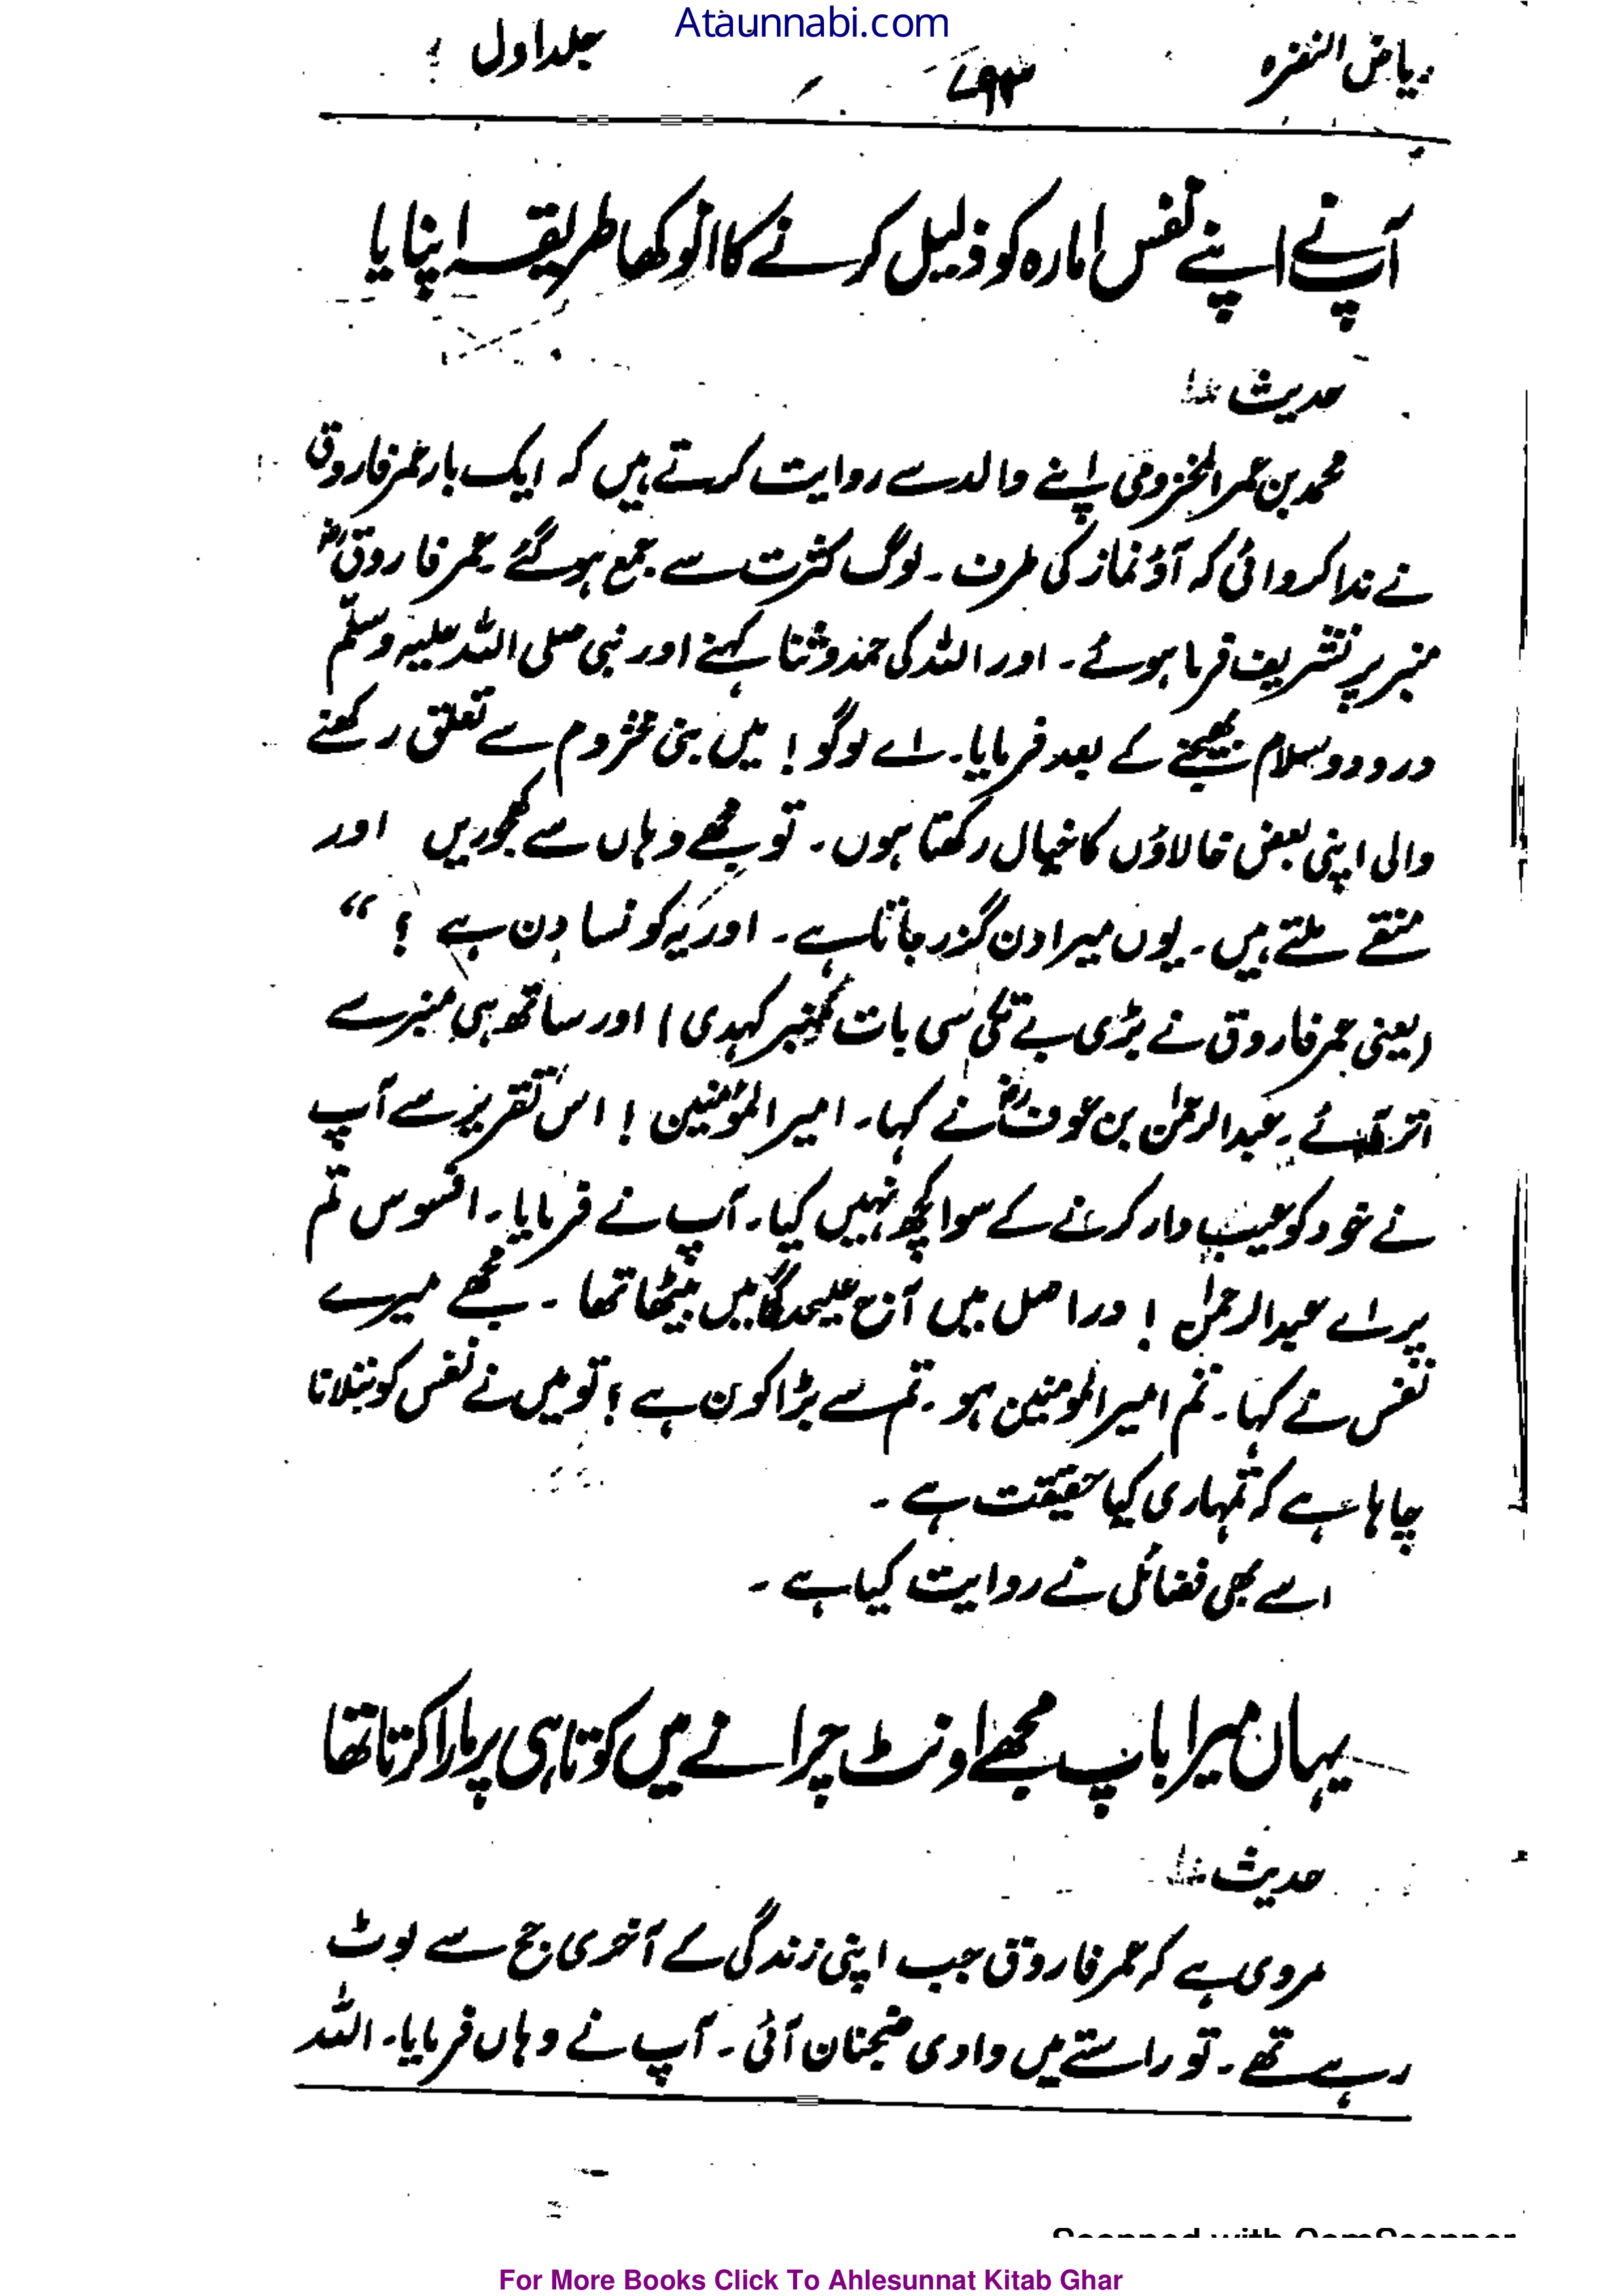 Ataunnabi.com
ریاض النضرہ ۶۹۳ جلد اول
آپ نے اپنے نفس امارہ کو ذلیل کرنے کا انوکھا طریقہ اپنایا
حدیث
محمد بن عمر المخزومی اپنے والد سے روایت کرتے ہیں کہ ایک بار عمر فاروق
نے ندا کروائی کہ آؤ نماز کی طرف ۔ لوگ کثرت سے جمع ہو گئے ۔ عمر فاروقؓ
منبر پر تشریف فرما ہوئے ۔ اور اللہ کی حمد و ثنا کہنے اور نبی صلی اللہ علیہ وسلم
درود و سلام بھیجنے کے بعد فرمایا ۔ اے لوگو ! میں بنی مخزوم سے تعلق رکھنے
والی اپنی بعض خالاؤں کا خیال رکھتا ہوں ۔ تو مجھے وہاں سے کھجوریں اور
منقے ملتے ہیں ۔ یوں میرا دن گزر جاتا ہے ۔ اور یہ کونسا دن ہے ؟ “
(یعنی عمر فاروق نے بڑی بے تکی سی بات کہدی) اور ساتھ ہی منبر سے
اتر آئے ۔ عبدالرحمٰن بن عوفؓ نے کہا ۔ امیر المؤمنین ! اس تقریر سے آپ
نے خود کو عیب دار کرنے کے سوا کچھ نہیں کیا ۔ آپ نے فرمایا ۔ افسوس تم
پر اے عبدالرحمٰن ! دراصل میں آج علیحدگی میں بیٹھا تھا ۔ مجھے میرے
نفس نے کہا ۔ تم امیر المومنین ہو ۔ تم سے بڑا کون ہے ؟ تو میں نے نفس کو بتلانا
چاہا ہے کہ تمہاری کیا حقیقت ہے ۔
اسے بھی فضائلی نے روایت کیا ہے ۔
یہاں میرا باپ مجھے اونٹ چرانے میں کوتاہی پر مارا کرتا تھا
حدیث
مروی ہے کہ عمر فاروق جب اپنی زندگی کے آخری حج سے لوٹ
رہے تھے ۔ تو راستے میں وادی ضجنان آئی ۔ آپ نے وہاں فرمایا ۔ اللہ
Scanned with CamScanner
For More Books Click To Ahlesunnat Kitab Ghar